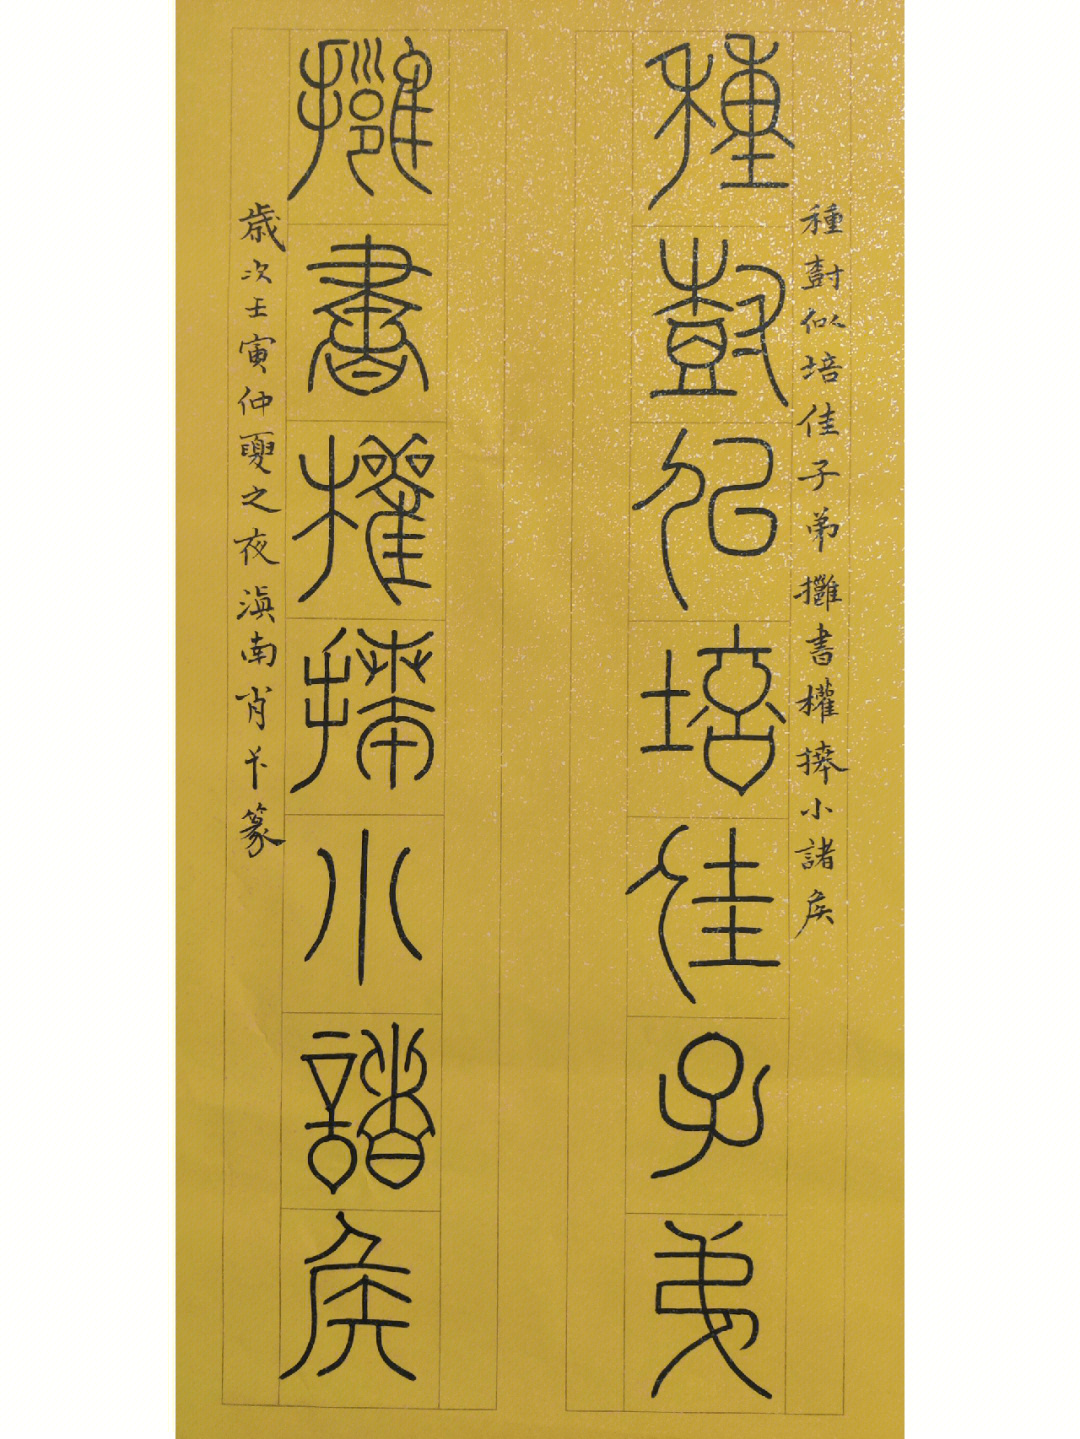 種尌似培佳子弟擁書權捧小諸矦
種尌似培佳子弟
擁書權捧小諸矦
歲次壬寅仲夏之夜滇南肖卞篆